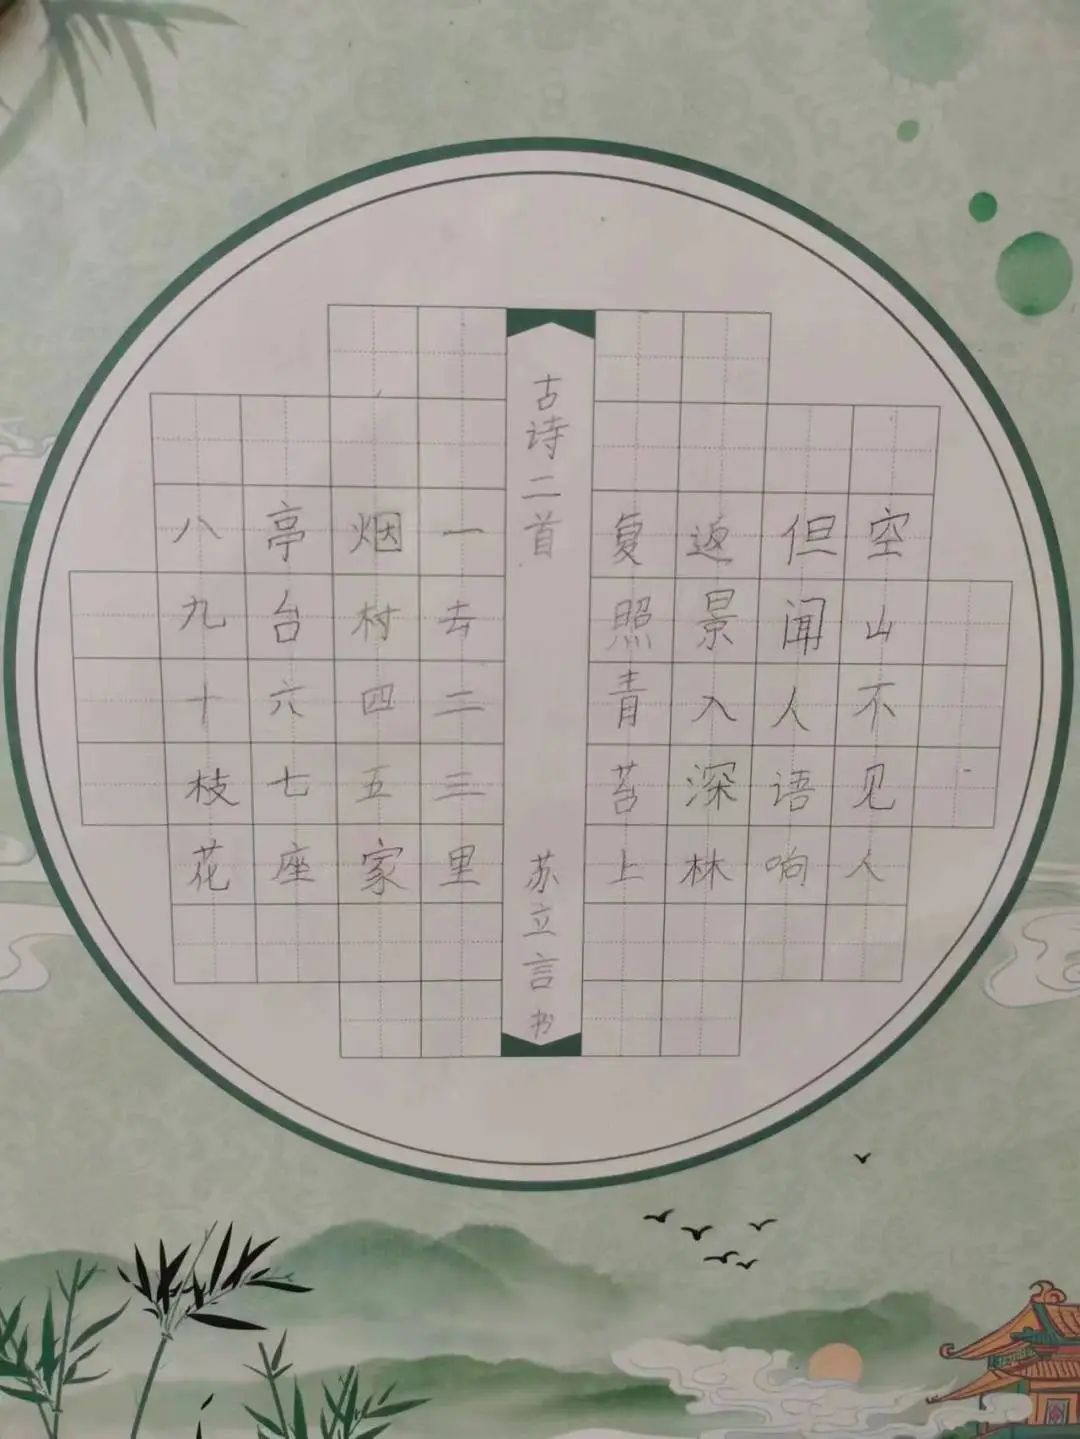 空山不见人
但闻人语响
返景入深林
复照青苔上
古诗二首
苏立言书
一去二三里
烟村四五家
亭台六七座
八九十枝花